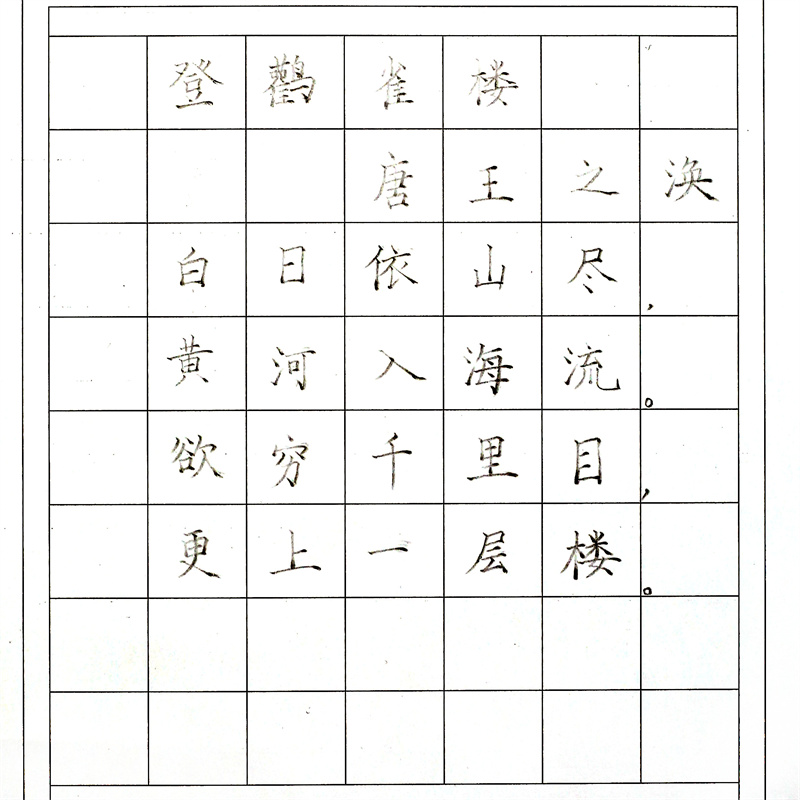 登鸛雀楼
唐王之涣
白日依山尽，
黄河入海流。
欲穷千里目，
更上一层楼。